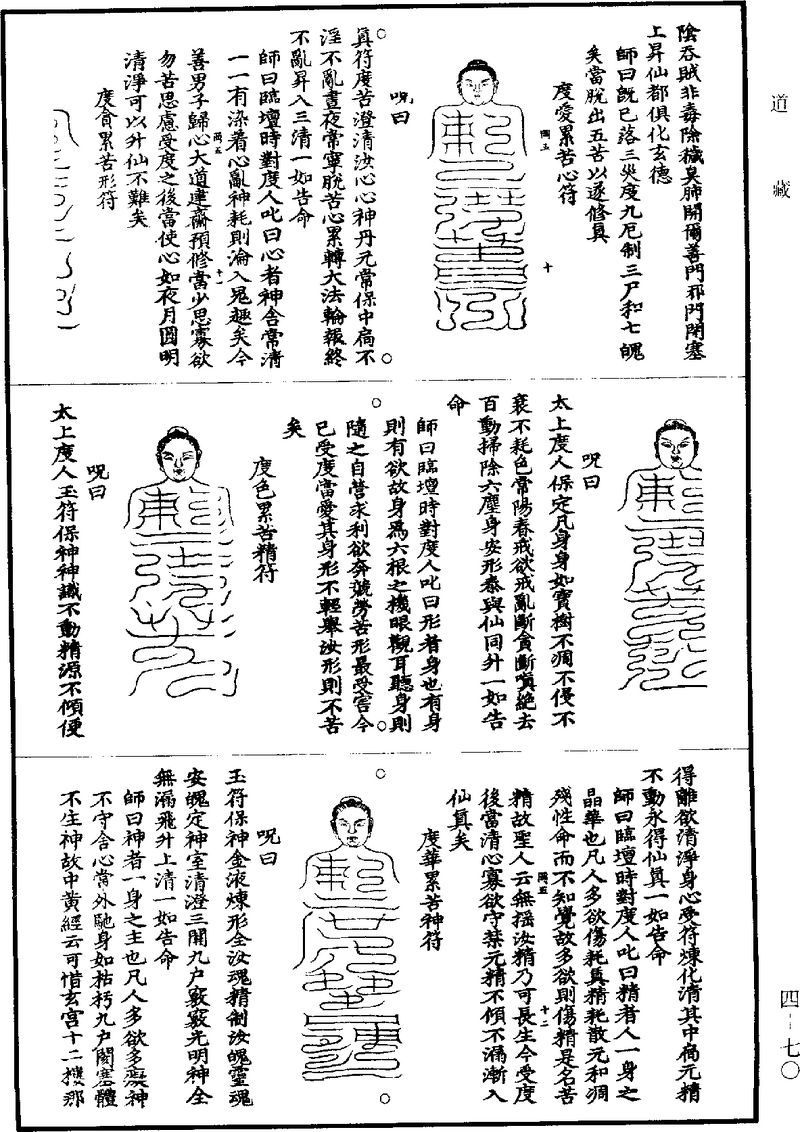 道藏
四-七〇
陰吞賊非毒除穢臭肺開爾善門邪門閉塞
上昇仙都俱化玄德
師曰旣已落三災度九厄制三尸和七魄
矣當脫出五苦以遂修真
度愛累苦心符
呪曰
真符度苦澄清汝心心神丹元常保中扃不
淫不亂晝夜常寧脫苦心累轉大法輪報終
不亂昇入三清一如告命
師曰臨壇時對度人叱曰心者神舍常清
一一有染着心亂神耗則淪入鬼趣矣今
善男子歸心大道建齋預修當少思寡欲
勿苦思慮受度之後當使心如夜月圓明
清淨可以升仙不難矣
度貪累苦形符
呪曰
太上度人保定凡身身如寶樹不凋不優不
衰不耗色常陽春戒欲戒亂斷貪斷嗔絶去
百動掃除六塵身安形泰與仙同升一如告
命
師曰臨壇時對度人叱曰形者身也有身
則有欲故身爲六根之機眼觀耳聽身則
隨之自營求利欲奔號勞苦形最受害今
已受度當愛其身形不輕舉汝形則不苦
矣
度色累苦精符
呪曰
太上度人玉符保神神識不動精源不傾便
得離欲清淨身心受符煉化清其中扃元精
不動永得仙真一如告命
師曰臨壇時對度人叱曰精者人一身之
晶華也凡人多欲傷耗真精耗散元和凋
殘性命而不知覺故多欲則傷精是名苦
精故聖人云無摇汝精乃可長生今受度
後當清心寡欲守禁元精不傾不漏漸入
仙真矣
度華累苦神符
呪曰
玉符保神金液煉形全汝魂精制汝魄靈魂
安魄定神室清澄三開九户竅竅光明神全
無漏飛升上清一如告命
師曰神者一身之主也凡人多欲多癡神
不守舍心常外馳身如枯朽九户閡塞體
不生神故中黃經云可惜玄宮十二樓那